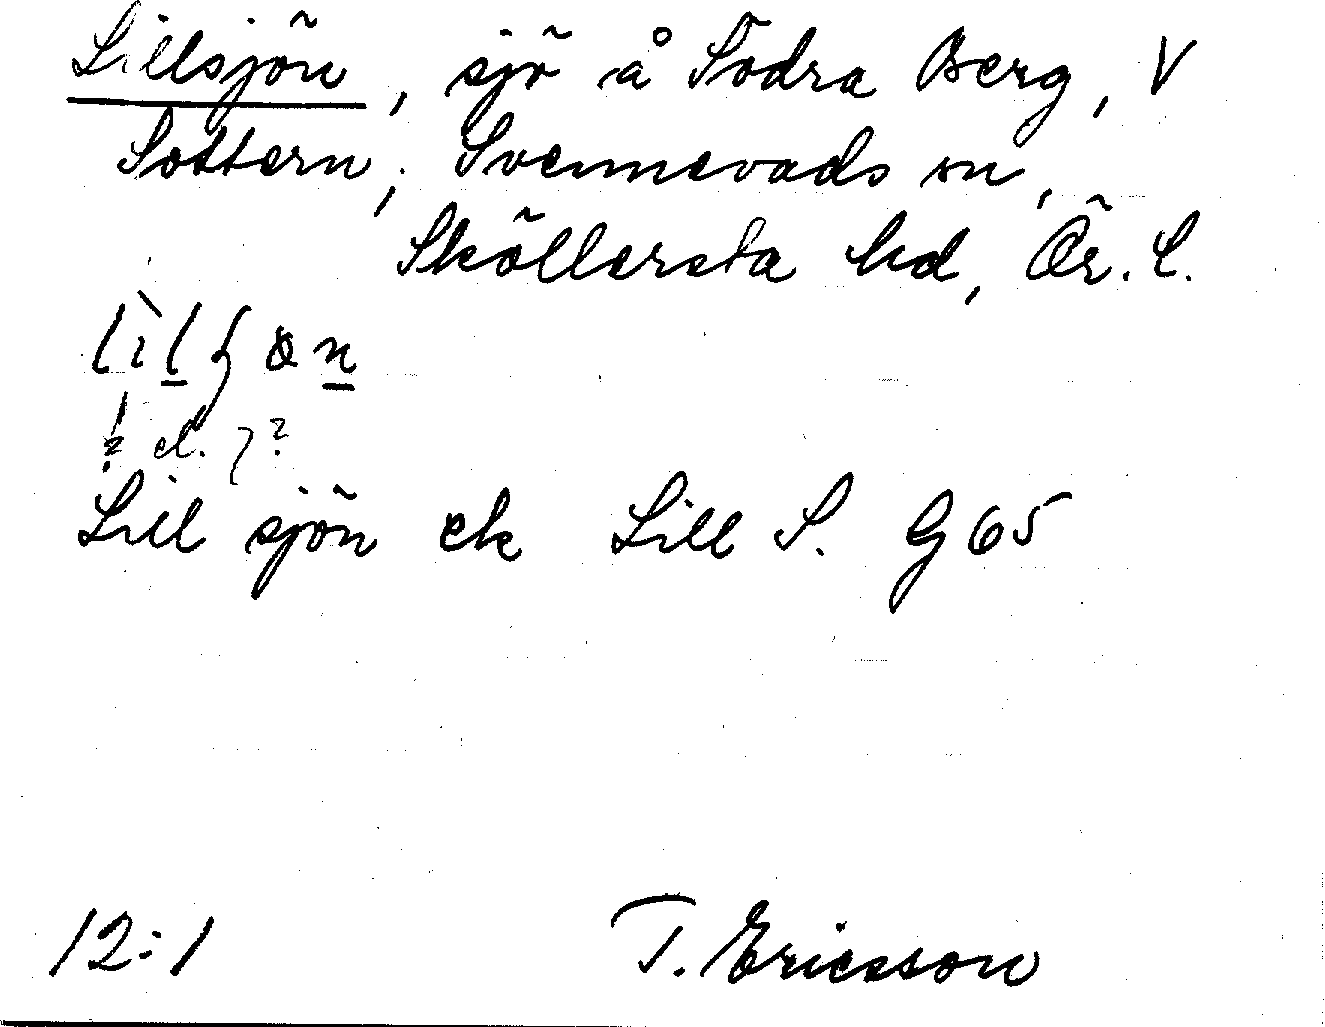 Lillsjön, sjö å Södra Berg, V
Sottern, Svennevads sn,
Sköllersta hd, Ör. l.
el. ?
Lill sjön ek Lill S. G 65
12:1 T. Ericsson